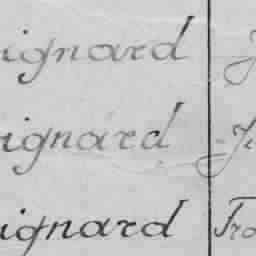 ignard J
ignard Je
ignard Fra